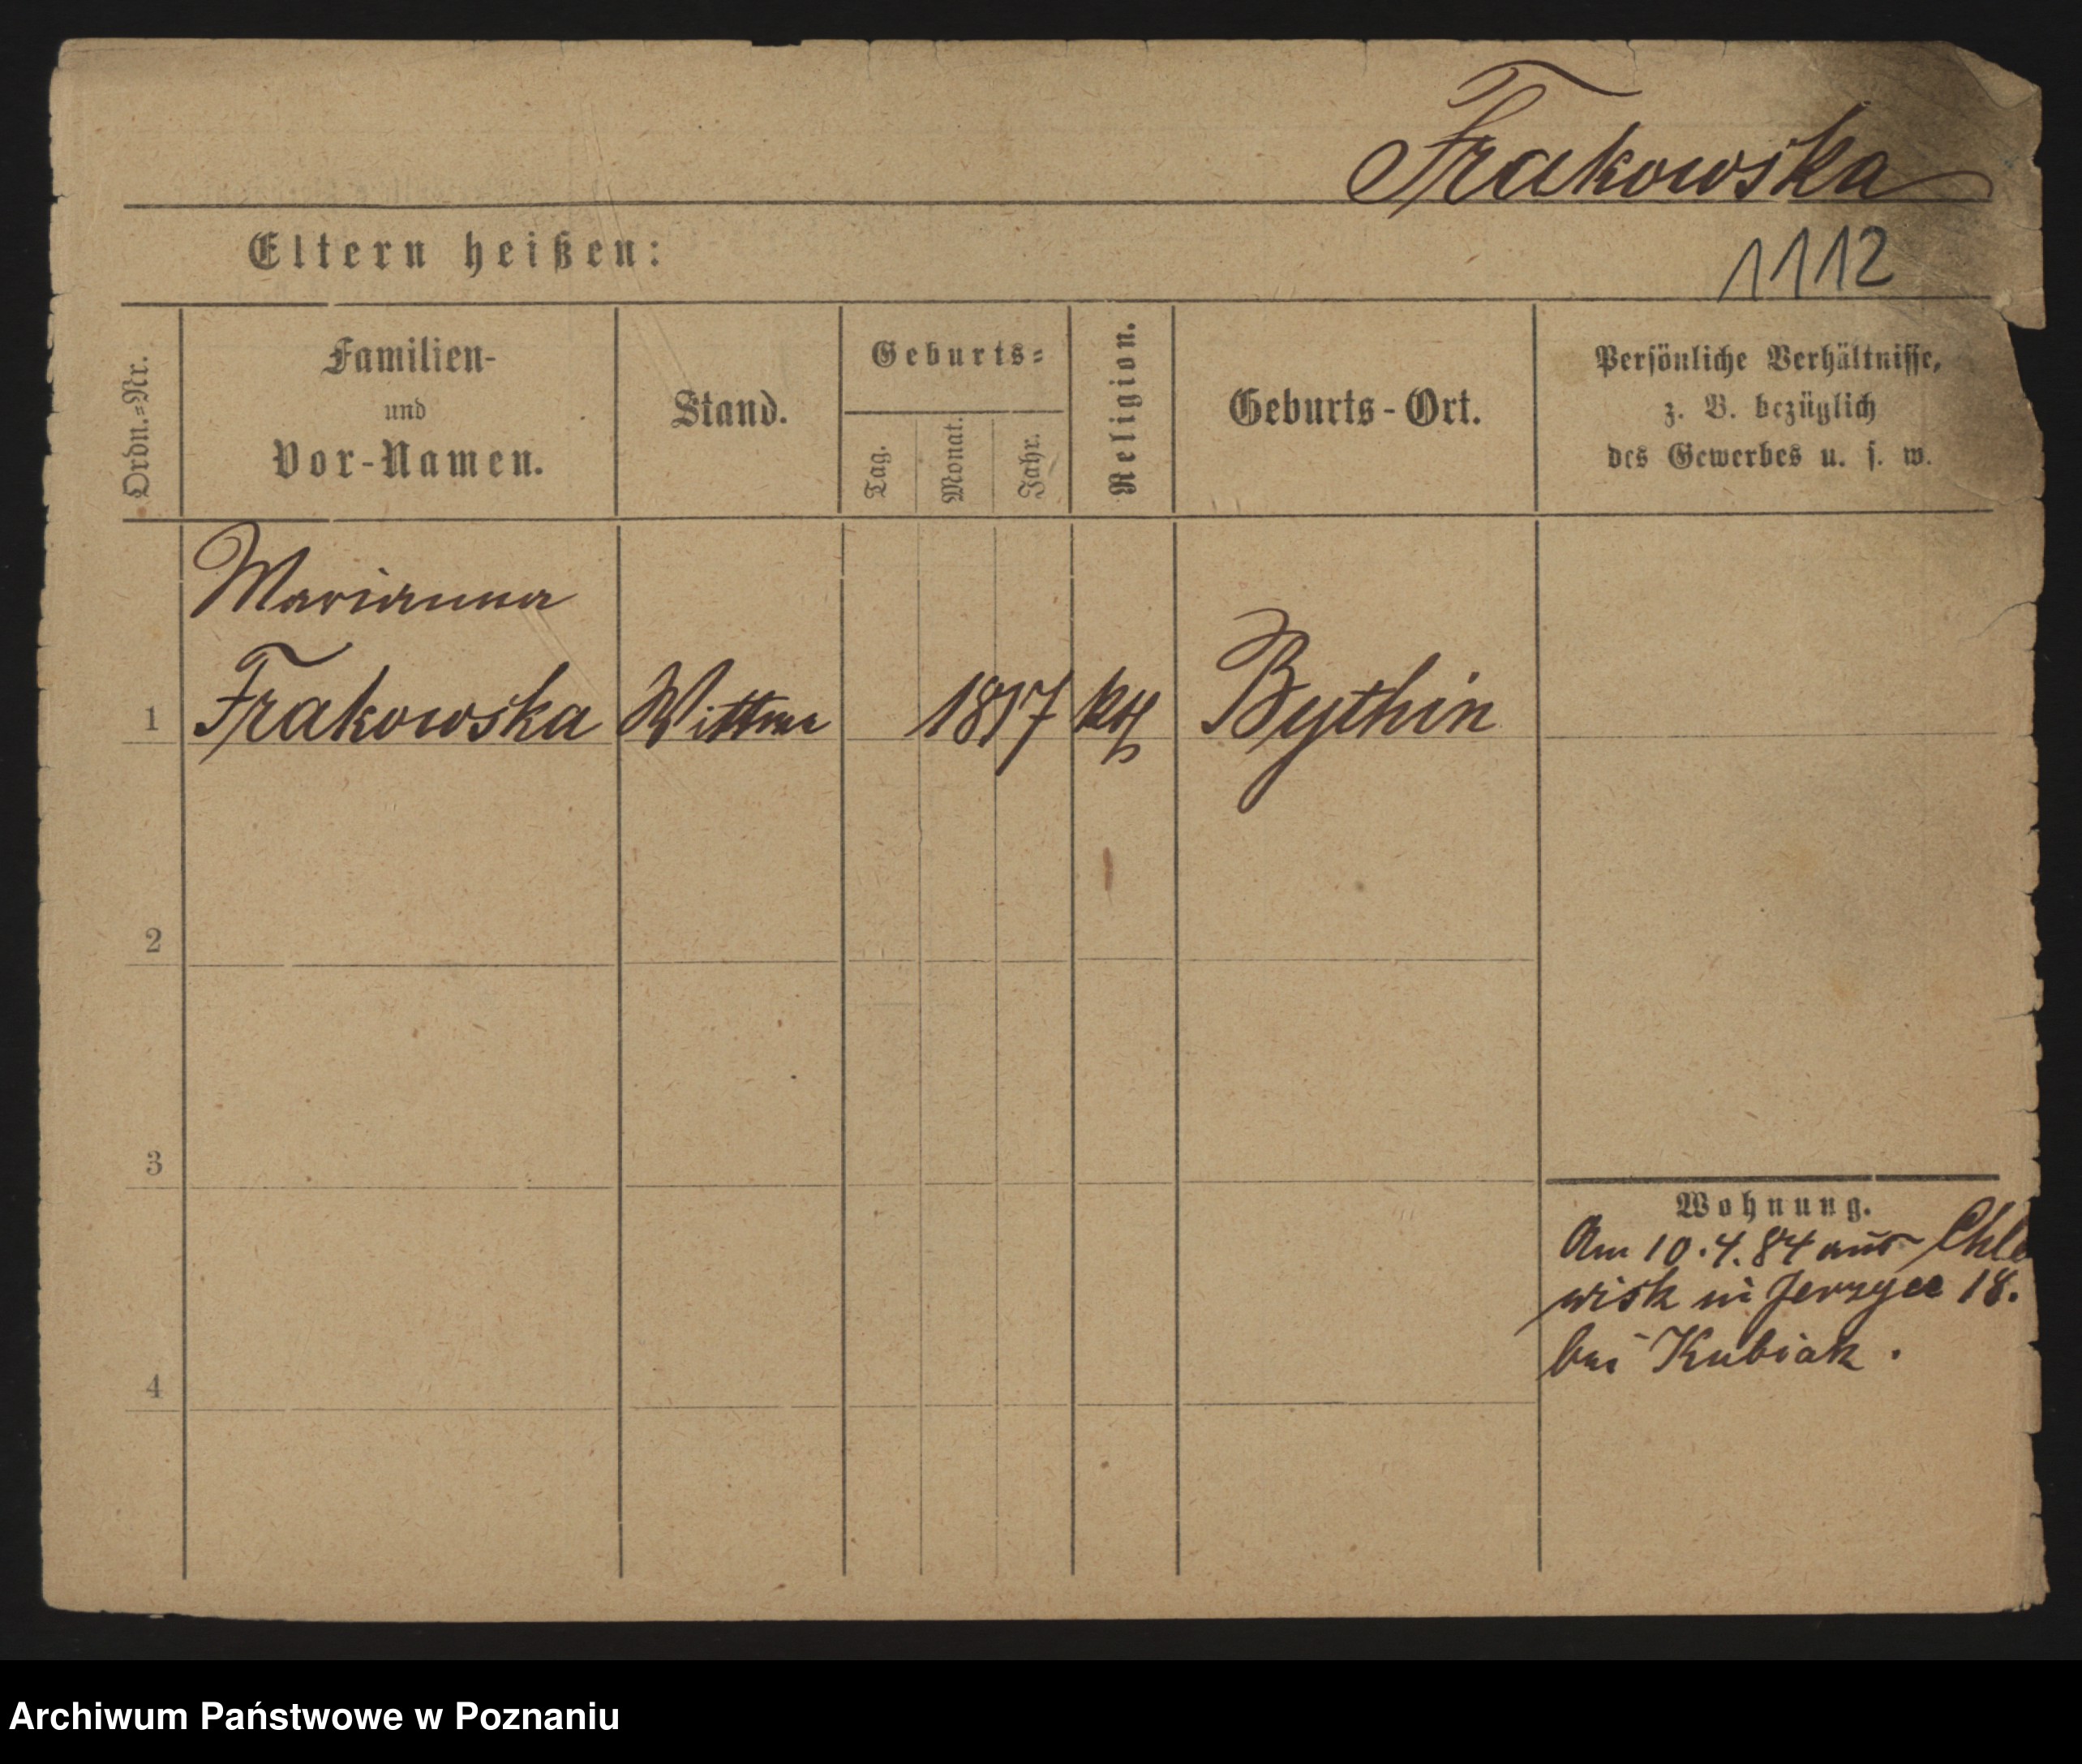 Frakowska
Eltern heißen:
1112
Ordn.=Nr.
Familien-
und
Vor-Namen.
Stand.
Geburts=
Tag.
Monat.
Jahr.
Religion.
Geburts-Ort.
Persönliche Verhältnisse,
z. B. bezüglich
des Gewerbes u. s. w.
Marianna
1 Frakowska Wittwe kth Bythin
2
3
Wohnung.
Am 10.4.84 aus Chle
wisk in Jerzyce 18.
bei Kubiak.
4
Archiwum Państwowe w Poznaniu